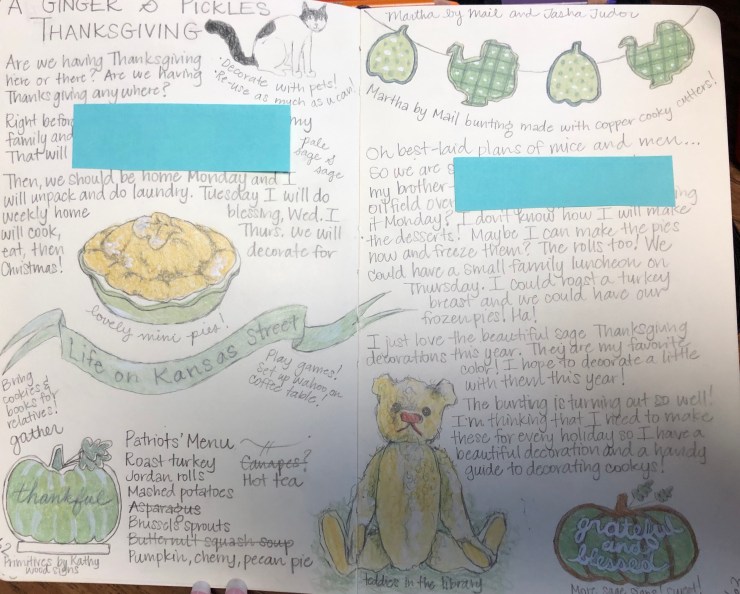 A GINGER & PICKLES
THANKSGIVING
Are we having Thanksgiving
here or there? Are we having
Thanksgiving anywhere?
Right before my
family and
That will
· Decorate with pets!
· Re-use as much as u can!
pale
sage &
sage
Then, we should be home Monday and I
will unpack and do laundry. Tuesday I will do
weekly home blessing, Wed. I
will cook, Thurs. we will
eat, then decorate for
Christmas!
lovely mini pies!
Life on Kansas Street
Play games!
Set up Wahoo on
coffee table.
Bring
cookies &
books for
relatives!
gather
thankful
Primitives by Kathy
wood signs
Patriots' Menu
Roast turkey
Jordan rolls
Mashed potatoes
Asparagus
Brussels sprouts
Butternut squash soup
Pumpkin, cherry, pecan pie
Canapes?
Hot tea
Martha by Mail and Tasha Tudor
Martha by Mail bunting made with copper cooky cutters!
Oh best-laid plans of mice and men...
So we are
my brother-
oilfield over
it Monday? I don't know how I will make
the desserts! Maybe I can make the pies
now and freeze them? The rolls too! We
could have a small family luncheon on
Thursday. I could roast a turkey
breast and we could have our
frozen pies! Ha!
I just love the beautiful sage Thanksgiving
decorations this year. They are my favorite
color! I hope to decorate a little
with them this year!
The bunting is turning out so well!
I'm thinking that I need to make
these for every holiday so I have a
beautiful decoration and a handy
guide to decorating cookys!
teddies in the library
grateful
and
blessed
More sage signs! Sweet!